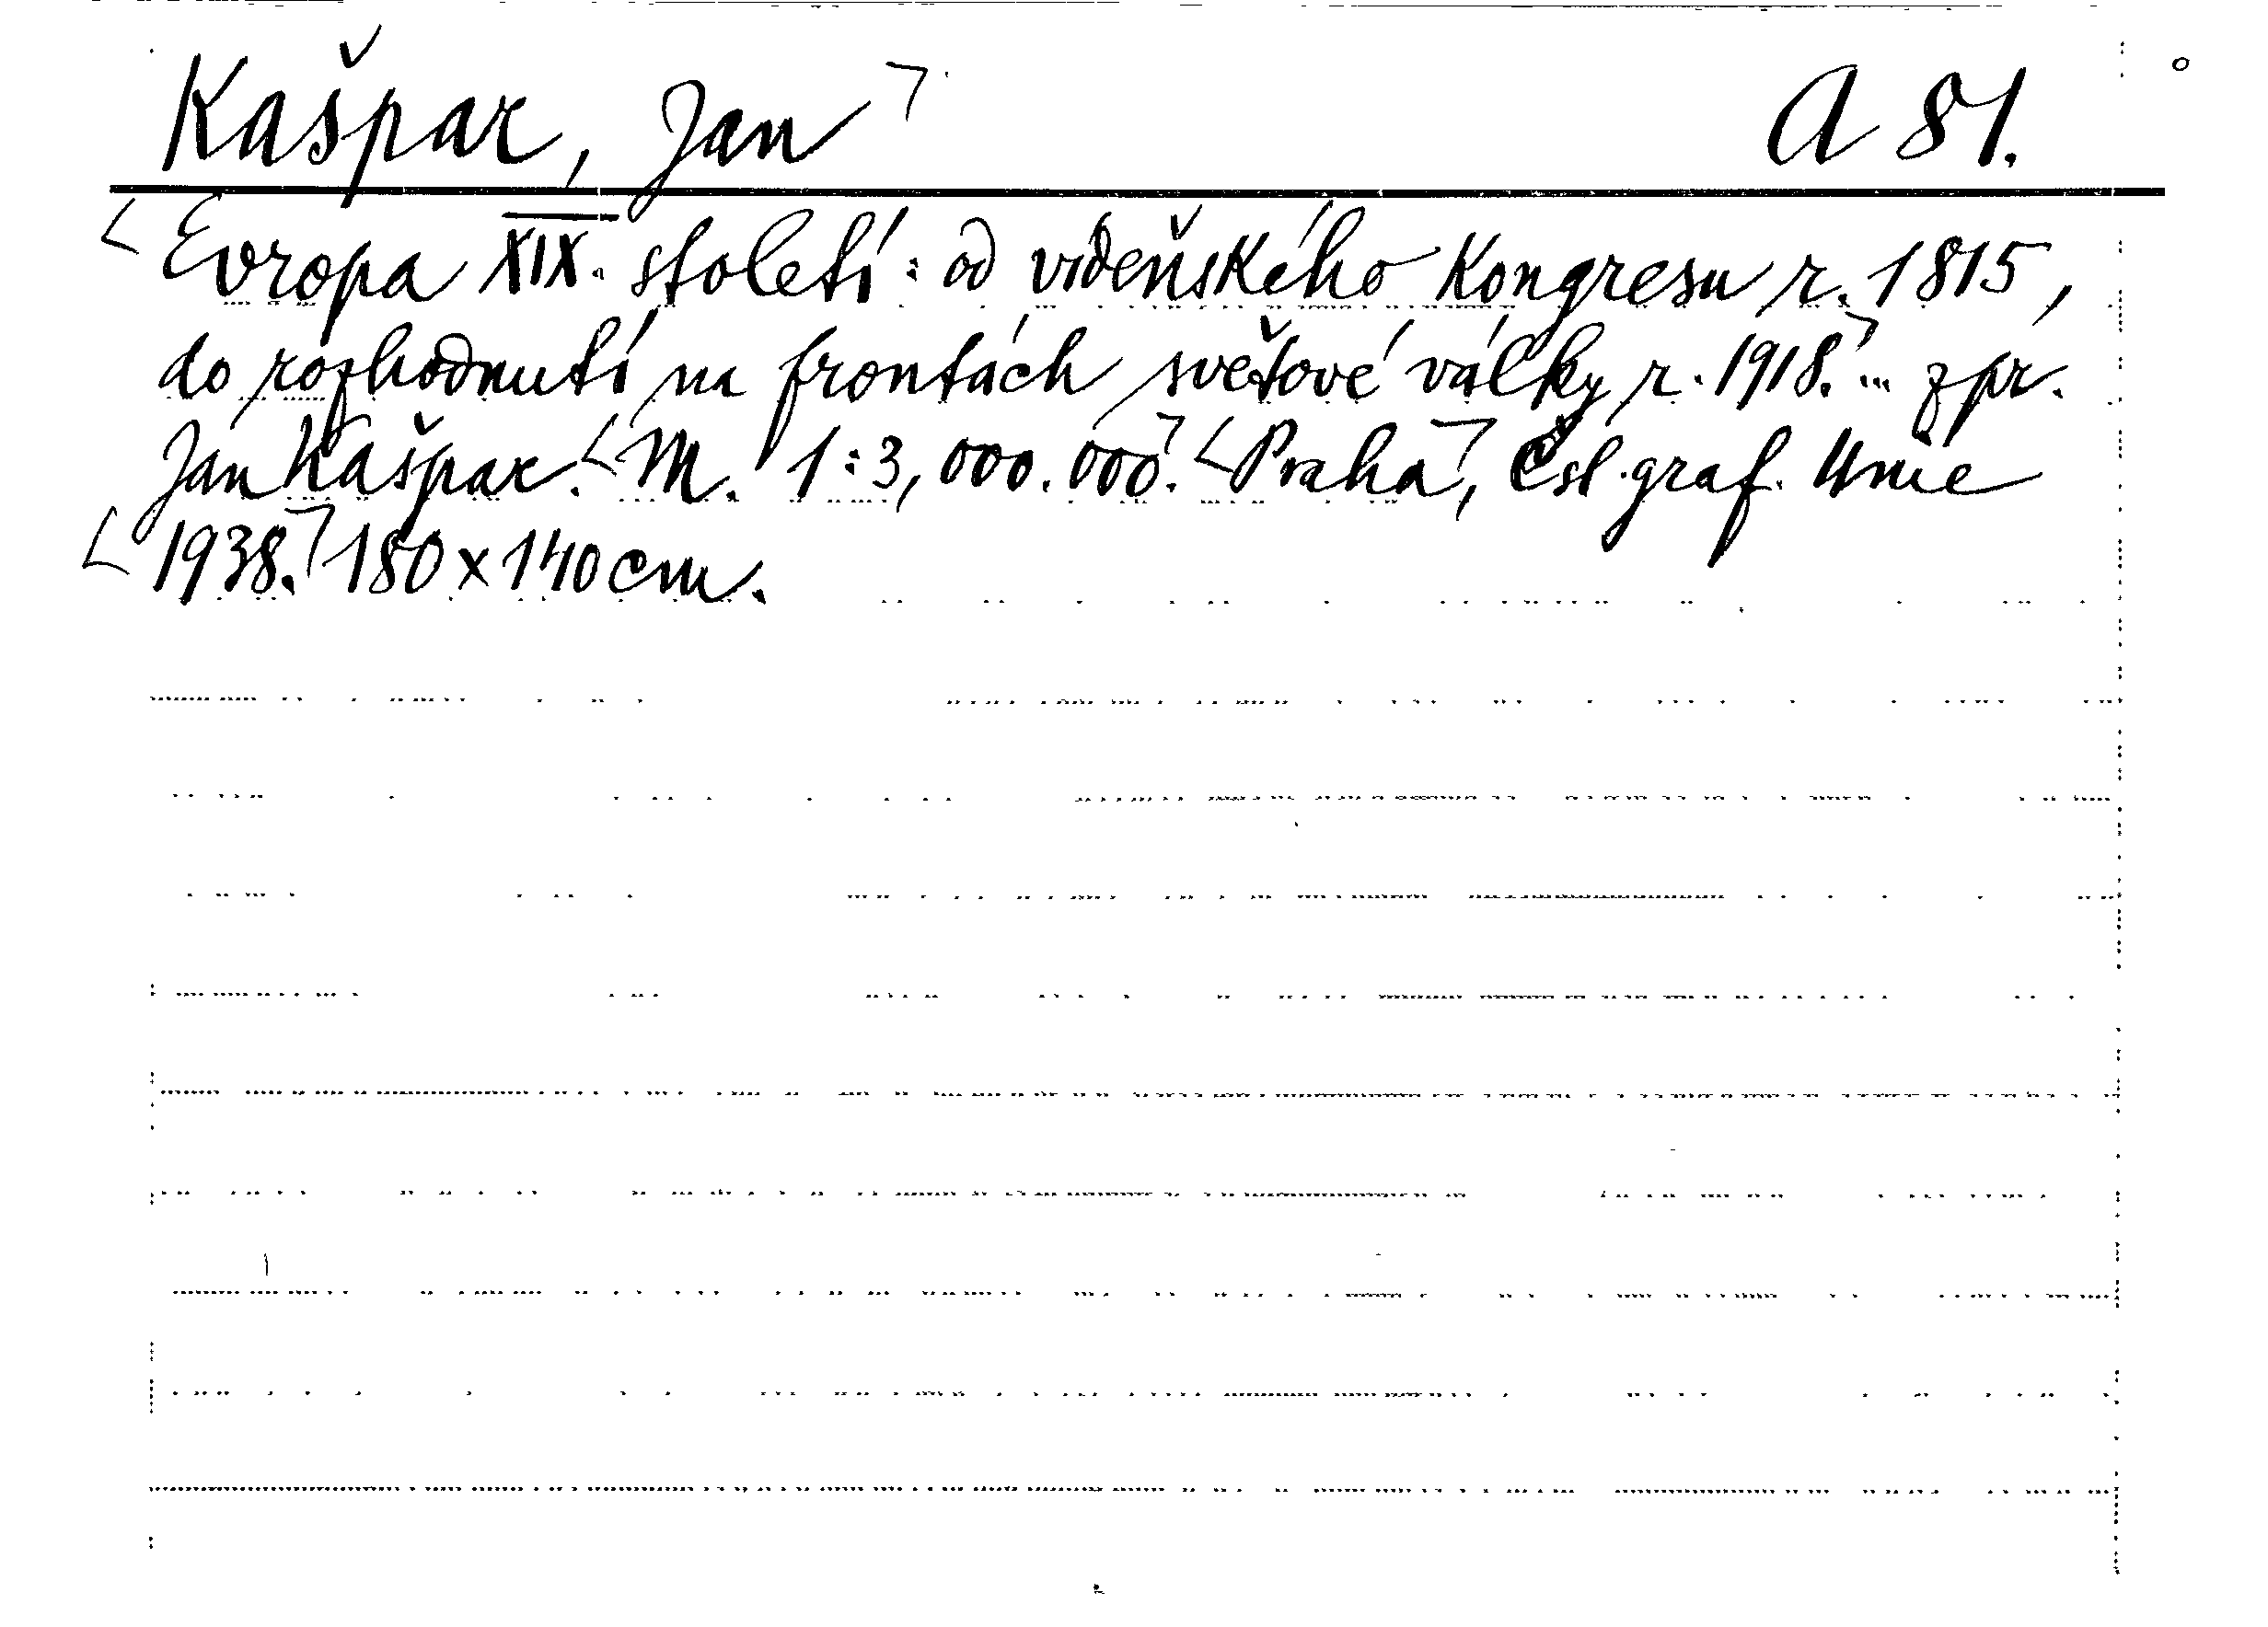 Kašpar, Jan A 81.
Evropa XIX. století: od vídeňského kongresu r. 1815,
do rozhodnutí na frontách světové války r. 1918. ... zpr.
Jan Kašpar. M. 1:3,000.000. Praha, Čsl. graf. Unie
1938. 180 x 140 cm.